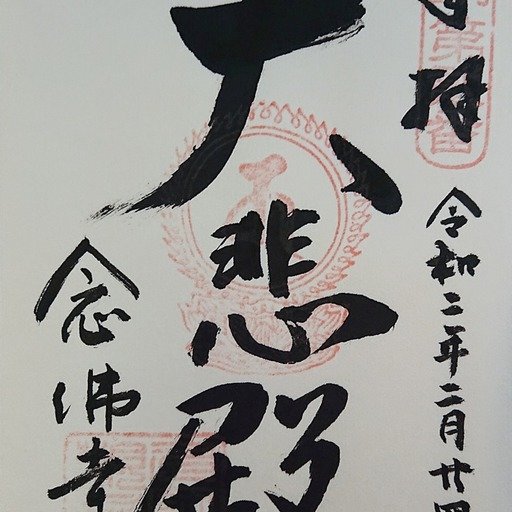 奉拝
令和二年二月廿四
大悲殿
念佛寺